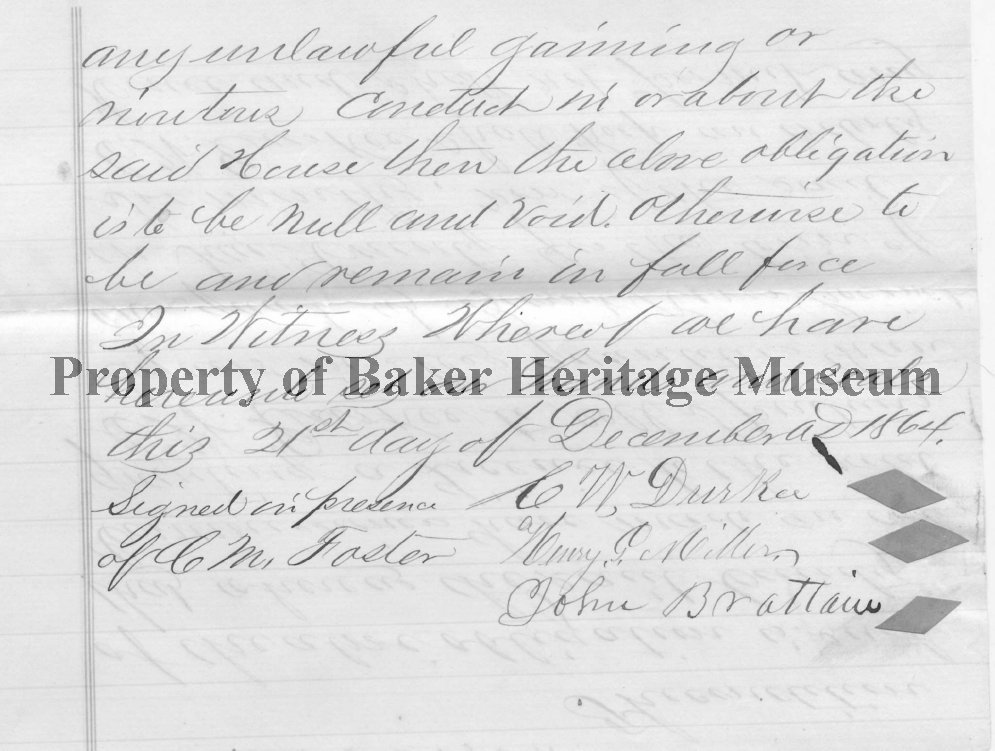 any unlawful gaming or
rioutous conduct in or about the
said House then the above obligation
is to be Null and Void. Otherwise to
be and remain in full force
In Witness Whereof we have
Property of Baker Heritage Museum
hereunto set our hands and seals
this 21st day of December AD 1864.
Signed in presence
of C M. Foster
C W. Durkee
Henry C. Miller
John Brattain